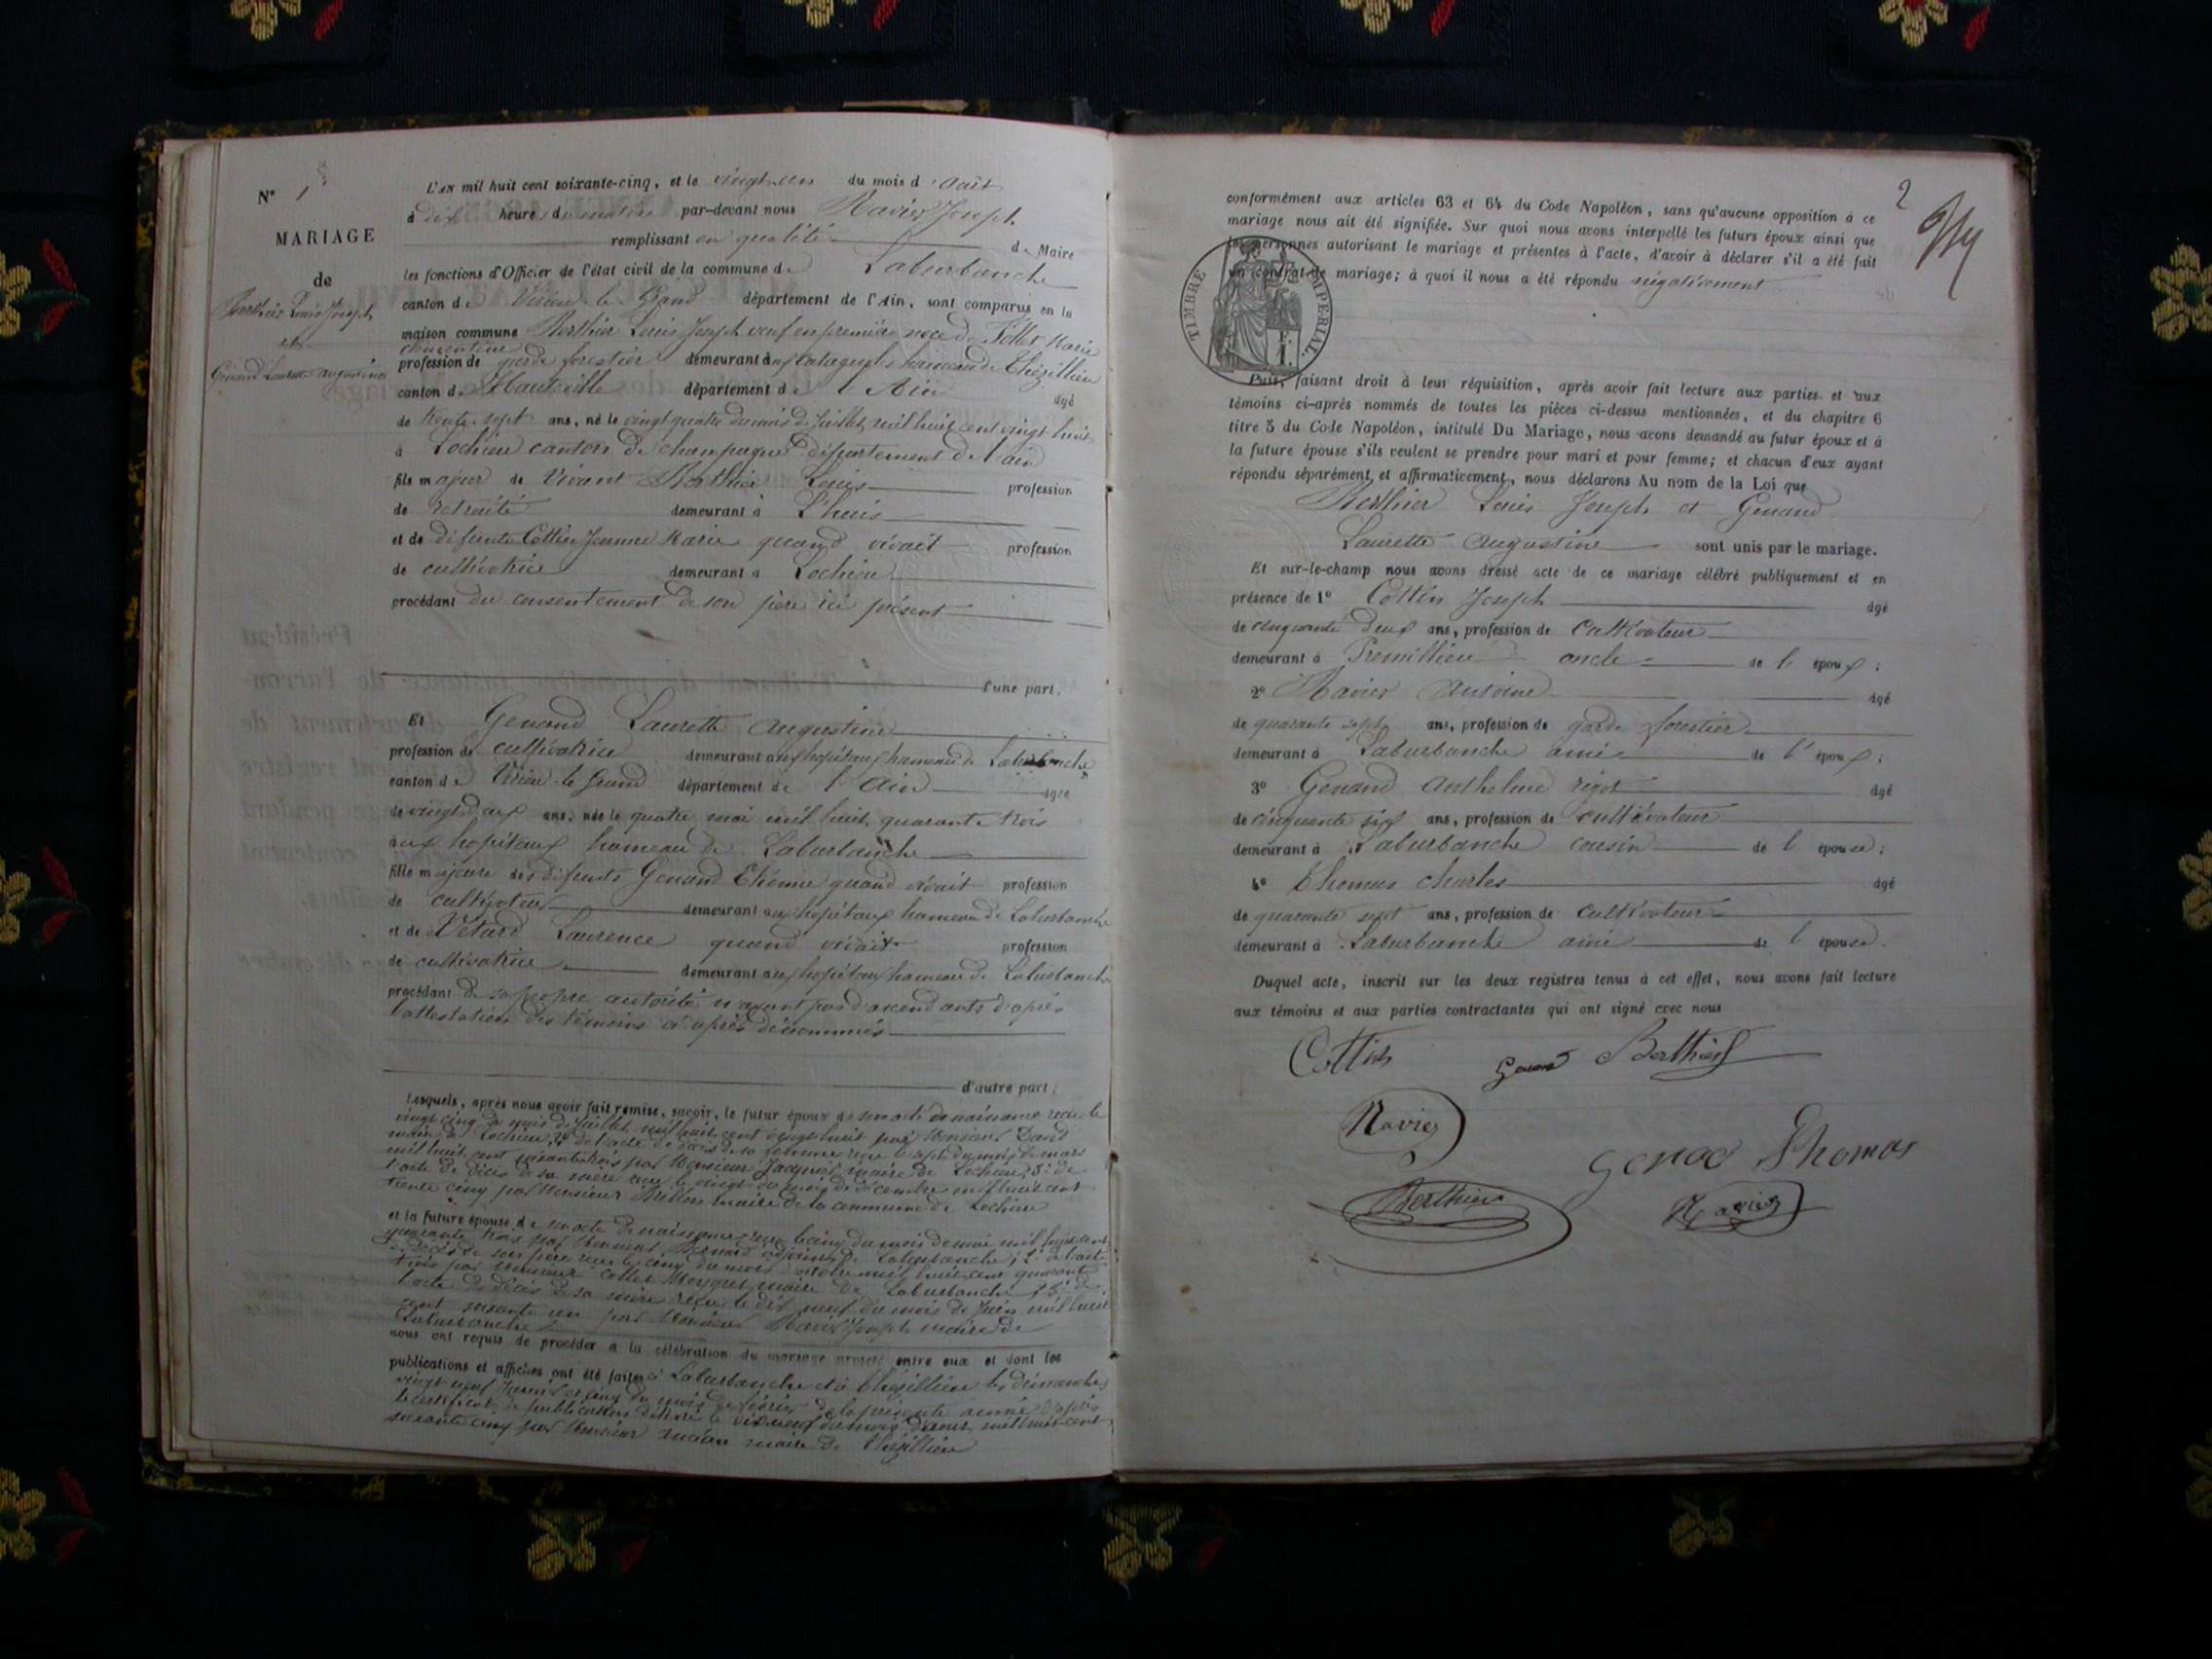 N° 1
MARIAGE
de
Berthier Louis Joseph
et
Genand Laurette Augustine
L'AN mil huit cent soixante-cinq, et le vingt un du mois d'août
à dix heures du matin par-devant nous Ravier Joseph
remplissant en qualité de Maire
les fonctions d'Officier de l'état civil de la commune de Laburbanche
canton de Virieu-le-Grand département de l'Ain, sont comparus en la
maison commune Berthier Louis Joseph veuf en première noce de Follet Marie
clementine
profession de garde forestier demeurant à hameau de Thézillieu
canton de Hauteville département de l'Ain âgé
de trente-sept ans, né le vingt quatre du mois de Juillet mil huit cent vingt huit
à Lochieu canton de champagne département de l'ain
fils majeur de Vivant Berthier Louis profession
de retraité demeurant à L'huis
et de défunte Cottin Jeanne Marie quand vivait profession
de cultivatrice demeurant à Lochieu
procédant du consentement de son père ici présent
d'une part.
Et Genand Laurette Augustine
profession de cultivatrice demeurant aux hopitaux hameau de Laburbanche
canton de Virieu-le-Grand département de l'Ain âgée
de vingt deux ans, née le quatre mai mil huit quarante trois
aux hopitaux hameau de Laburbanche
fille majeure des défunts Genand Etienne quand vivait profession
de cultivateur demeurant aux hopitaux hameau de Laburbanche
et de Vetard Laurence quand vivait profession
de cultivatrice demeurant aux hopitaux hameau de Laburbanche
procédant de sa propre autorité n'ayant pas d'ascendants d'après
l'attestation des témoins ci après dénommés
d'autre part;
Lesquels, après nous avoir fait remise, savoir, le futur époux de son acte de naissance reçu le
vingt cinq du mois de Juillet mil huit cent vingt huit par Monsieur
maire de Lochieu, 2° de l'acte de décès de sa femme reçu le sept du mois de mars
mil huit cent soixante trois par Monsieur Jacquet maire de Lochieu, 3° de
l'acte de décès de sa mère reçu le vingt du mois de décembre mil huit cent
trente cinq par Monsieur maire de la commune de Lochieu
et la future épouse de son acte de naissance reçu le cinq du mois de mai mil huit cent
quarante trois par Monsieur adjoint de Laburbanche; 2° de l'acte
de décès de son père reçu le cinq du mois octobre mil huit cent quarante
trois par Monsieur Collet Meygret maire de Laburbanche, 3° de
l'acte de décès de sa mère reçu le dix neuf du mois de Juin mil huit
cent soixante un par Monsieur Ravier Joseph maire de
Laburbanche
nous ont requis de procéder à la célébration du mariage projeté entre eux et dont les
publications et affiches ont été faites à Laburbanche et à Thézillieu les dimanches
vingt neuf et cinq du mois de février de la présente année d'après
le certificat de publication délivré le mil huit cent
soixante cinq par Monsieur maire de Thézillieu
2
conformément aux articles 63 et 64 du Code Napoléon, sans qu'aucune opposition à ce
mariage nous ait été signifiée. Sur quoi nous avons interpellé les futurs époux ainsi que
les personnes autorisant le mariage et présentes à l'acte, d'avoir à déclarer s'il a été fait
un contrat de mariage; à quoi il nous a été répondu négativement
TIMBRE IMPERIAL.
Puis, faisant droit à leur réquisition, après avoir fait lecture aux parties et aux
témoins ci-après nommés de toutes les pièces ci-dessus mentionnées, et du chapitre 6
titre 5 du Code Napoléon, intitulé Du Mariage, nous avons demandé au futur époux et à
la future épouse s'ils veulent se prendre pour mari et pour femme; et chacun d'eux ayant
répondu séparément et affirmativement, nous déclarons Au nom de la Loi que
Berthier Louis Joseph et Genand
Laurette Augustine sont unis par le mariage.
Et sur-le-champ nous avons dressé acte de ce mariage célébré publiquement et en
présence de 1° Cottin Joseph âgé
de cinquante deux ans, profession de cultivateur
demeurant à Premillieu oncle de l'époux;
2° Ravier Antoine âgé
de quarante sept ans, profession de garde forestier
demeurant à Laburbanche ami de l'époux;
3° Genand Anthelme rigot âgé
de cinquante six ans, profession de cultivateur
demeurant à Laburbanche cousin de l'épouse;
4° Thomas Charles âgé
de quarante sept ans, profession de cultivateur
demeurant à Laburbanche ami de l'épouse.
Duquel acte, inscrit sur les deux registres tenus à cet effet, nous avons fait lecture
aux témoins et aux parties contractantes qui ont signé avec nous
Cottin Genand Berthier
Ravier
Thomas
Berthier Ravier